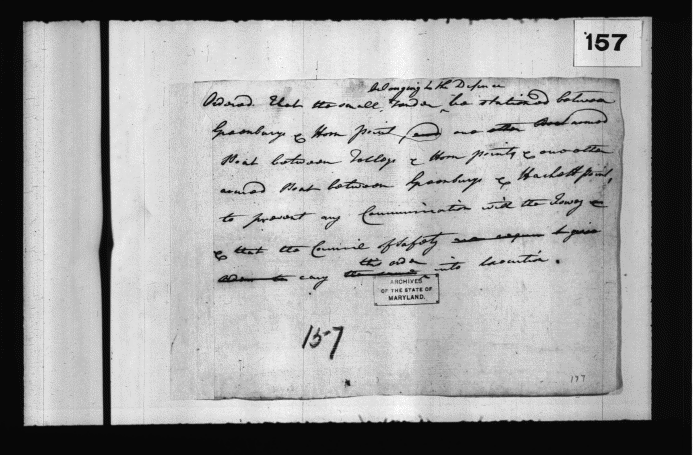 157
belonging to the Defence
Ordered that the small Tender be stationed between
Greenburys & Horn point and one other Boat armed
Boat between Tallys & Horn points & one other
armed Boat between Greenburys & Hacketts point,
to prevent any Communication with the Fowey &
& that the Council of Safety are requir to give
the order
orders to carry the same into Execution.
ARCHIVES
OF THE STATE OF
MARYLAND.
157
177